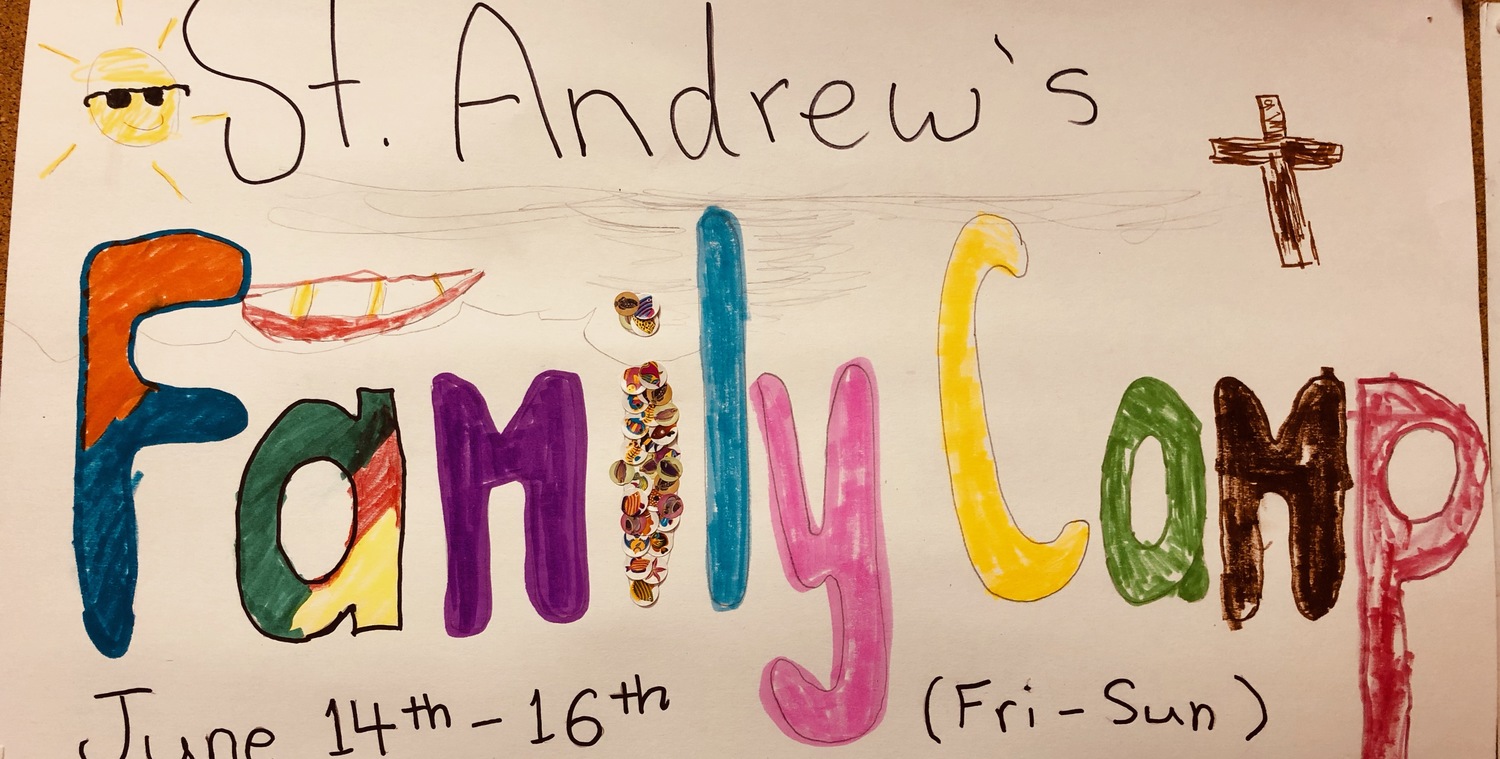 St. Andrew's
Family Camp
June 14th - 16th (Fri - Sun)